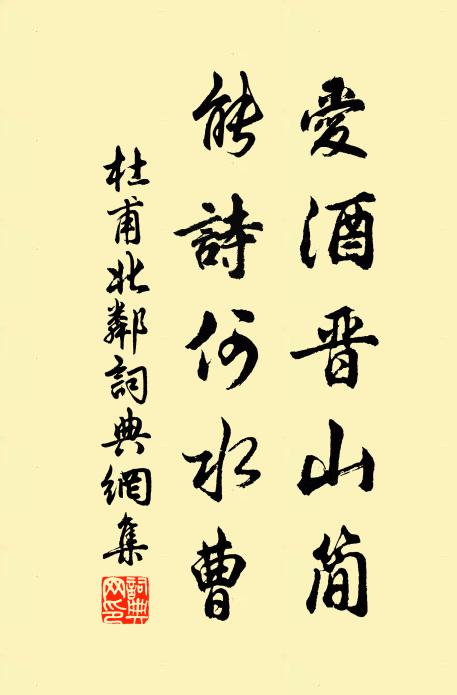 愛酒晋山簡
能詩何水曹
杜甫北鄰詞典網集
詞典
网印